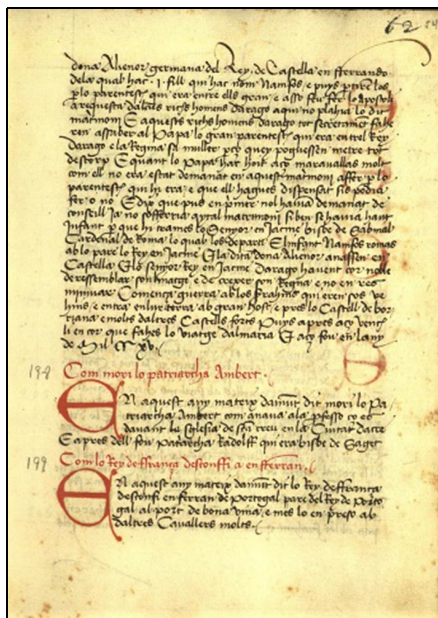 62
dona Alienor germana del Rey de Castella en fferrando
dela qual hac .i. fill qui hac nom Namfos e puys partiren los
plo parentesc qui era entre ells gran e asso feu fer lo apostoli
a requesta dalcuns richs homens darago aqui no plahia lo dit
matrimoni E aquests richs homens darago tot secretament fahe
ren assaber al Papa lo gran parentesc qui era entrel Rey
darago e la Regina sa muller per ço que poguessen metre tot
destorp E quant lo Papa hac hoit açi maravallas molt
com ell no era estat demanat en aquest matrimoni affer plo
parentesc qui hi era e que ell hagues dispensat sis podia
fer o no E dix que pus en primer nol havia demanat de
consell ja no sofferria aytal matrimoni si be sen havia haut
Infant per que hi trames lo Senyor en Jacme bisbe de Sabina
Cardenal de Roma lo qual los departi E linfant Namfos romas
ab lo pare lo Rey en Jacme E la dita dona Alienor anassen en
Castella E lo senyor Rey en Jacme darago havent cor
de ressemblar son linatge e de crexer son Regne e no en res
minuar Comença guerra ab los Serrahins qui eren sos ve
hins e entra en lur terra ab gran host e pres lo Castell de bor
riana e molts daltres Castells forts Puys apres aço venc
li en cor que fahes lo viatge dalmaria E aço feu en lany
de Mil CC xv.
198
Com mori lo patriarcha Ambert.
En aquest any mateix damunt dit mori lo Pa
triarcha Ambert com anava ala professo
davant la Esglesia de Scta creu en la Ciutat dacre
E apres dell fou Patriarcha Radolff qui era bisbe de Saget
199
Com lo Rey de ffrança desconffi a en fferran.
En aquest any mateix damunt dit lo Rey de ffrança
desconfi en ferran de Portogal pare del Rey de Porto
gal al port de bona vina e mes lo en preso ab
daltres Cavallers molts.